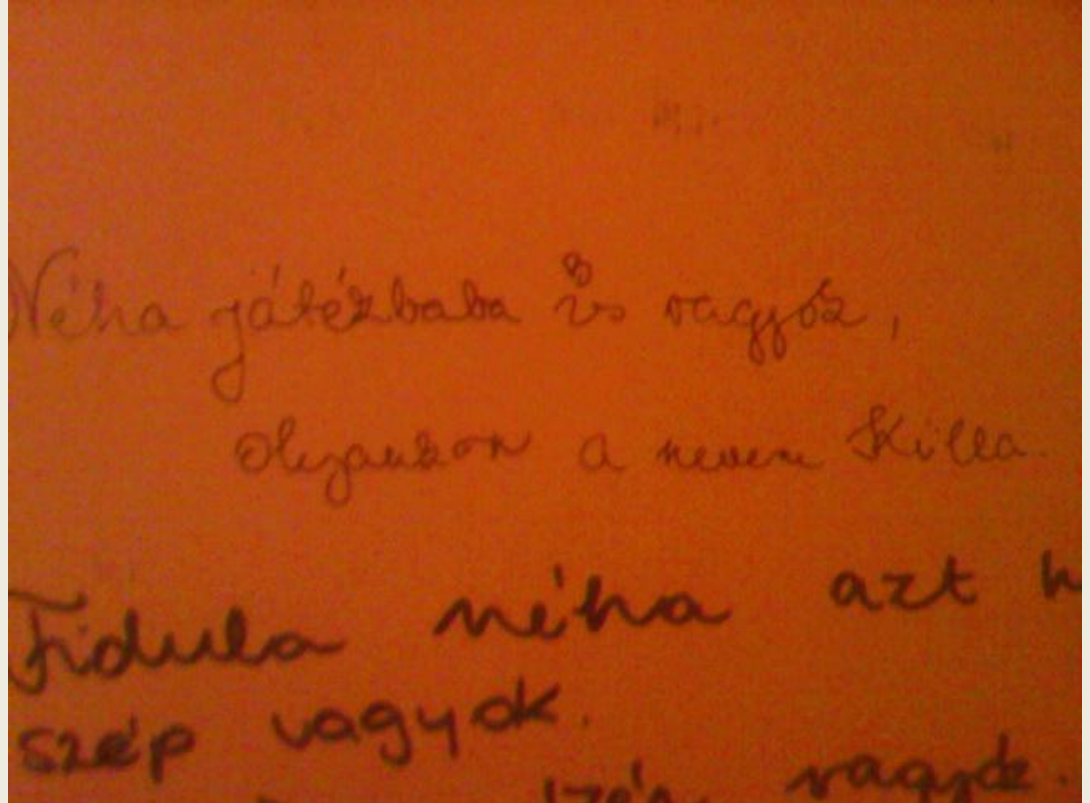 Néha játékbaba is vagyok,
olyankor a nevem Killa.
Fidula néha azt h
szép vagyok.
vagyok.